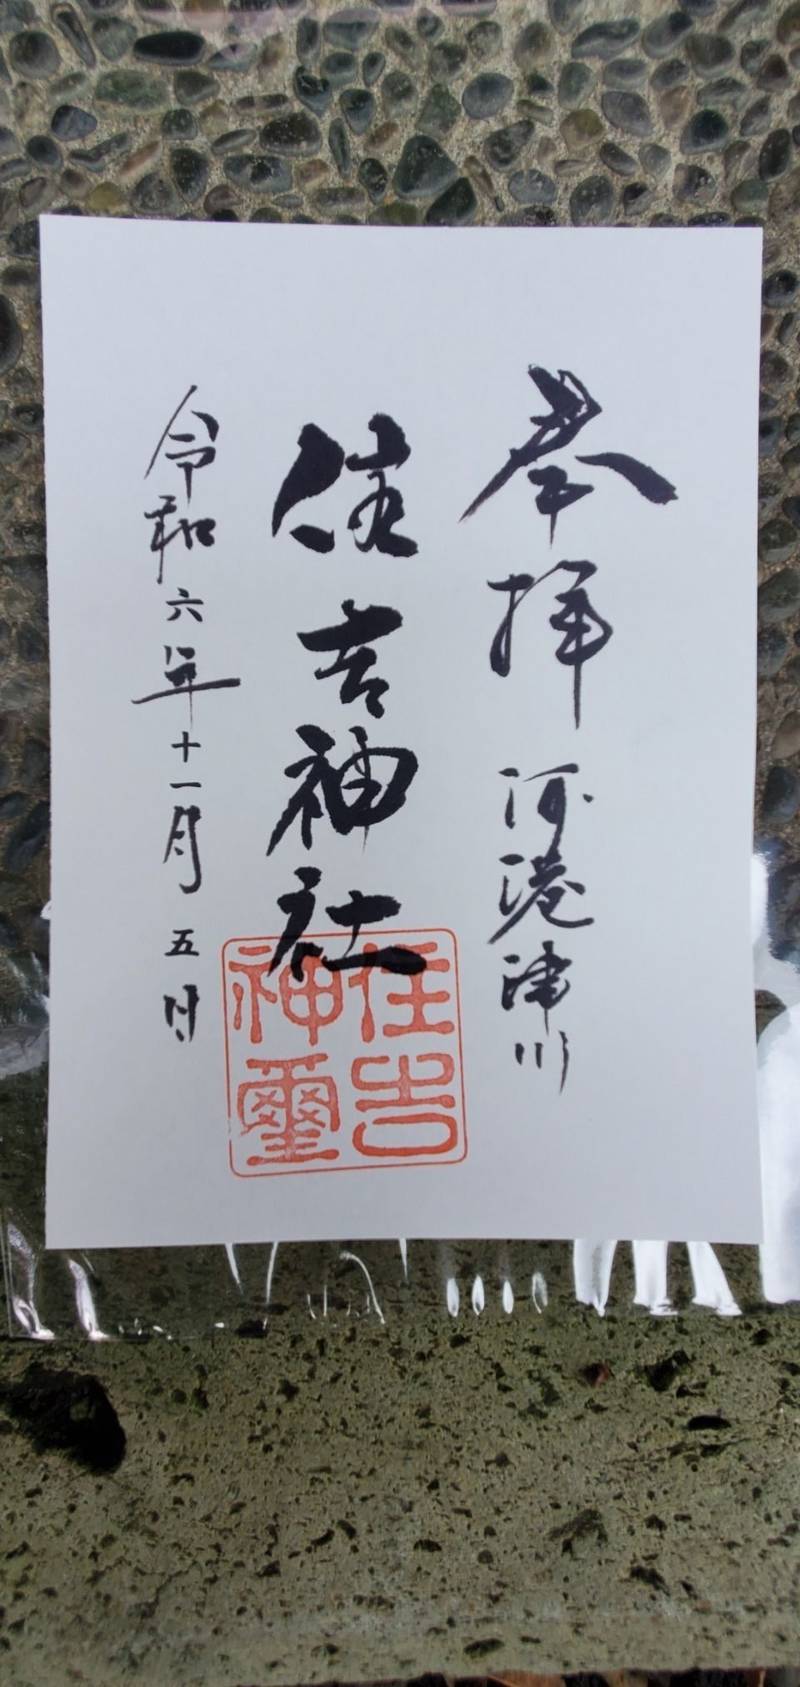 奉拝 河港津川
住吉神社
令和六年十一月五日
住吉
神璽